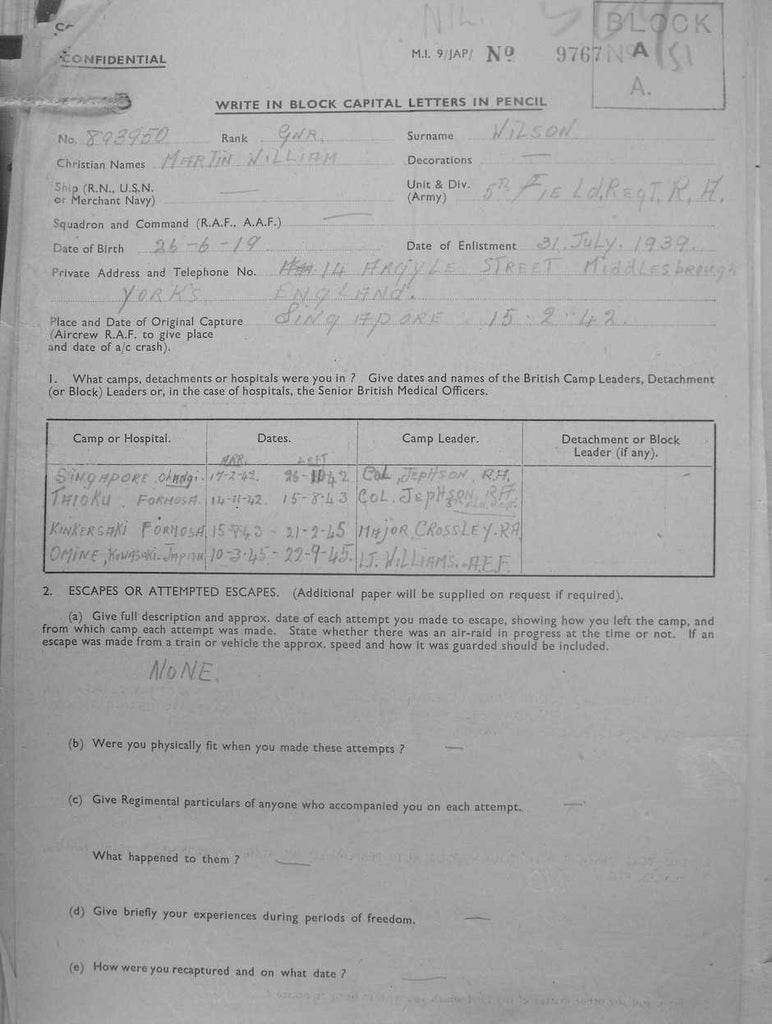 CONFIDENTIAL
M.I. 9/JAP/ No 9767
BLOCK
A
A.
WRITE IN BLOCK CAPITAL LETTERS IN PENCIL
No. 893950 Rank GNR. Surname WILSON
Christian Names MARTIN WILLIAM Decorations —
Ship (R.N., U.S.N. or Merchant Navy) — Unit & Div. (Army) 5TH FIELD. REGT. R.A.
Squadron and Command (R.A.F., A.A.F.) —
Date of Birth 26-6-19 Date of Enlistment 31. July. 1939.
Private Address and Telephone No. 14 ARGYLE STREET Middlesbrough
YORKS ENGLAND.
Place and Date of Original Capture SINGAPORE 15.2.42.
(Aircrew R.A.F. to give place
and date of a/c crash).
1. What camps, detachments or hospitals were you in ? Give dates and names of the British Camp Leaders, Detachment
(or Block) Leaders or, in the case of hospitals, the Senior British Medical Officers.
Camp or Hospital. Dates. Camp Leader. Detachment or Block
Leader (if any).
ARR. LEFT
SINGAPORE. Changi. 17-2-42. 26-10-42 COL. JEPHSON. R.A. —
TAIOKU. FORMOSA. 14-11-42. 15-8-43 COL. JEPHSON. R.A.
KINKERSAKI FORMOSA 15-8-43 - 21-2-45 MAJOR. CROSSLEY. RA
OMINE, KawasaKi. Japan 10-3-45 - 22-9-45. LT. WILLIAMS. A.E.F.
2. ESCAPES OR ATTEMPTED ESCAPES. (Additional paper will be supplied on request if required).
(a) Give full description and approx. date of each attempt you made to escape, showing how you left the camp, and
from which camp each attempt was made. State whether there was an air-raid in progress at the time or not. If an
escape was made from a train or vehicle the approx. speed and how it was guarded should be included.
NONE.
(b) Were you physically fit when you made these attempts ? —
(c) Give Regimental particulars of anyone who accompanied you on each attempt. —
What happened to them ? —
(d) Give briefly your experiences during periods of freedom. —
(e) How were you recaptured and on what date ? —